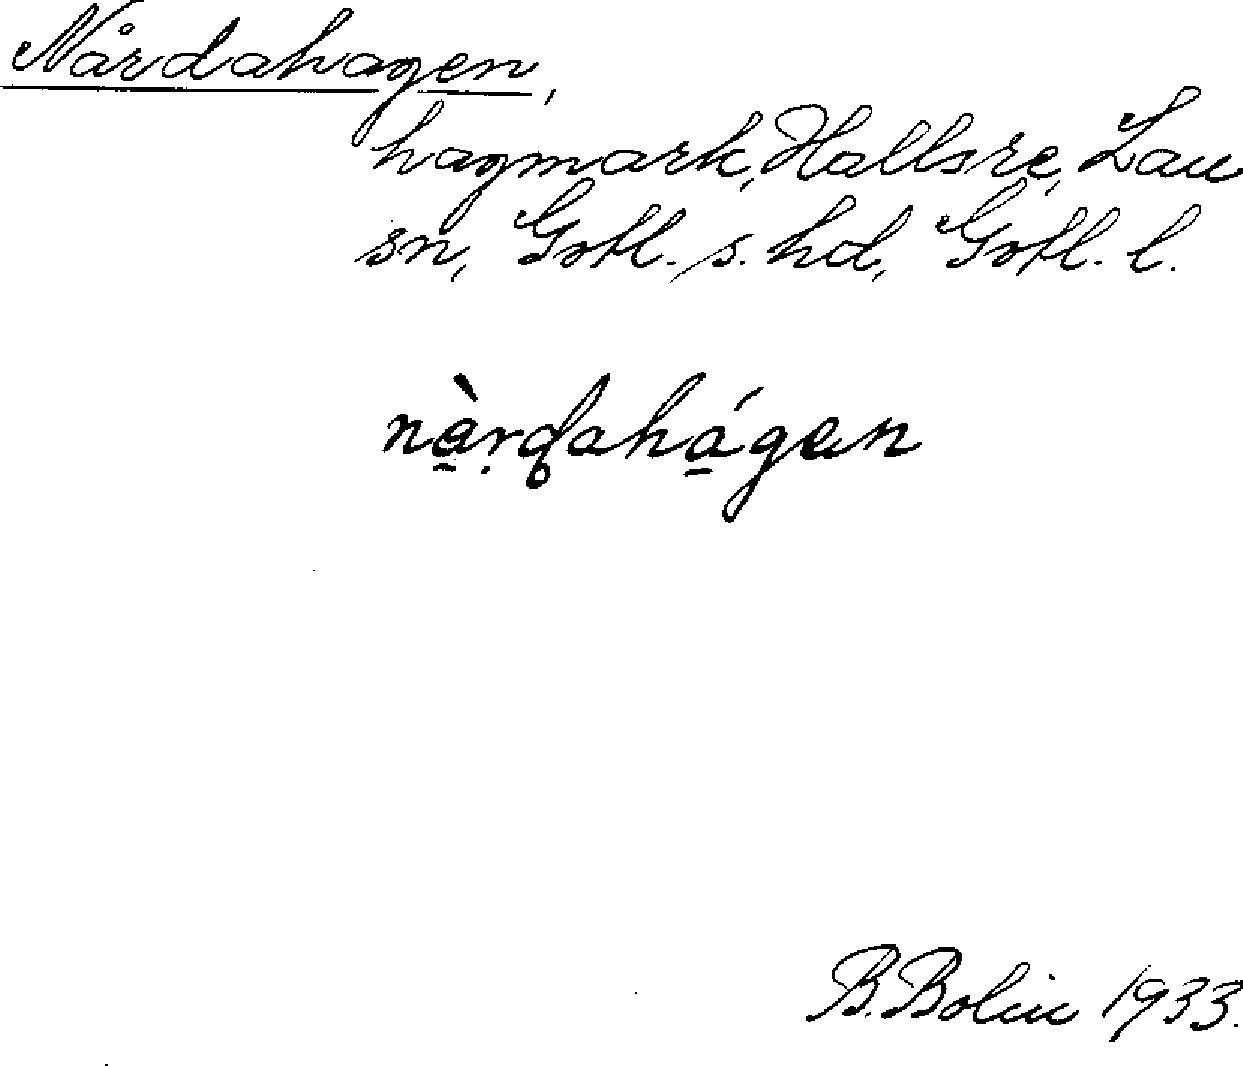 Nårdahagen,
hagmark, Hallsre, Lau
sn, Gotl. s. hd, Gotl. l.
nà̱ṛɖahá̱gen
B. Bolin 1933.